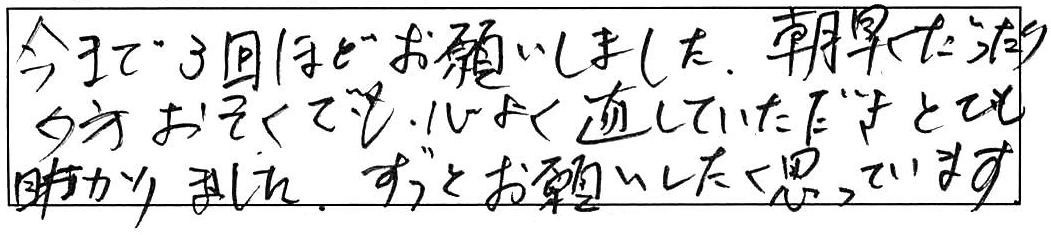 今まで3回ほどお願いしました。朝早くだったり
夕方おそくでも、心よく直していただきとても
助かりました。ずっとお願いしたく思っています。